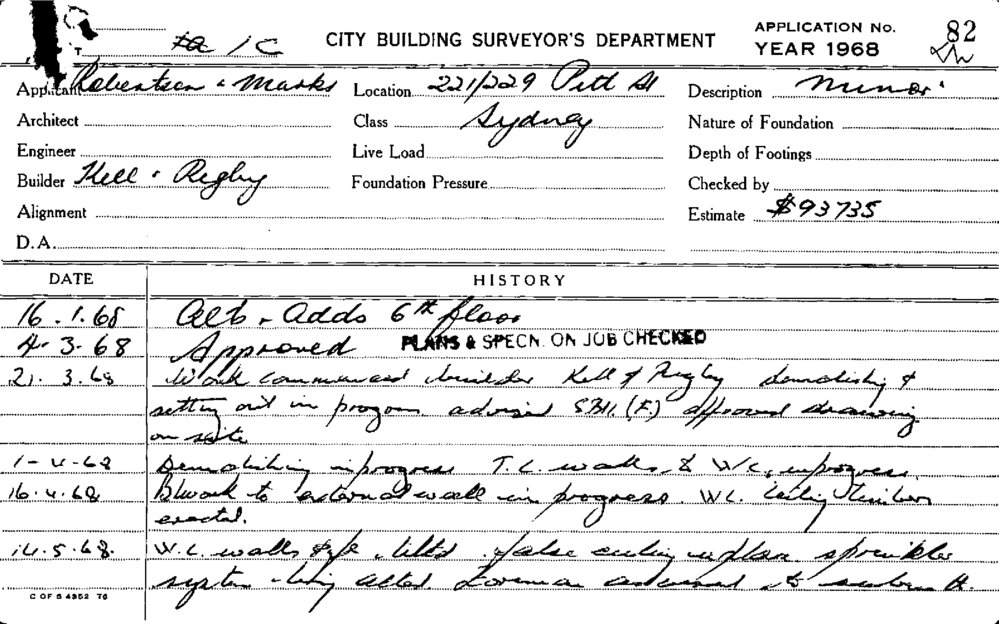 ta / C CITY BUILDING SURVEYOR'S DEPARTMENT APPLICATION No. 82
YEAR 1968
Applicant Robertson & Marks Location 221/229 Pitt St Description Minor
Architect Class Sydney Nature of Foundation
Engineer Live Load Depth of Footings
Builder Kell & Rigby Foundation Pressure Checked by
Alignment Estimate $93735
D.A.
DATE HISTORY
16.1.68 Alts & Adds 6th floor
4.3.68 Approved PLANS & SPECN. ON JOB CHECKED
21.3.68 Work commenced builder Kell & Rigby demolishing &
setting out in progress. advised (F.) approved drawing
on site
1-4-68 Demolishing in progress T.C. walls & W/C. in progress.
16.4.68 Bwork to external wall in progress. W.C. ceiling timbers
erected.
14.5.68. W.C. walls tiled. false ceiling in place sprinkler
system being alted. Foreman
C OF S 4352 76